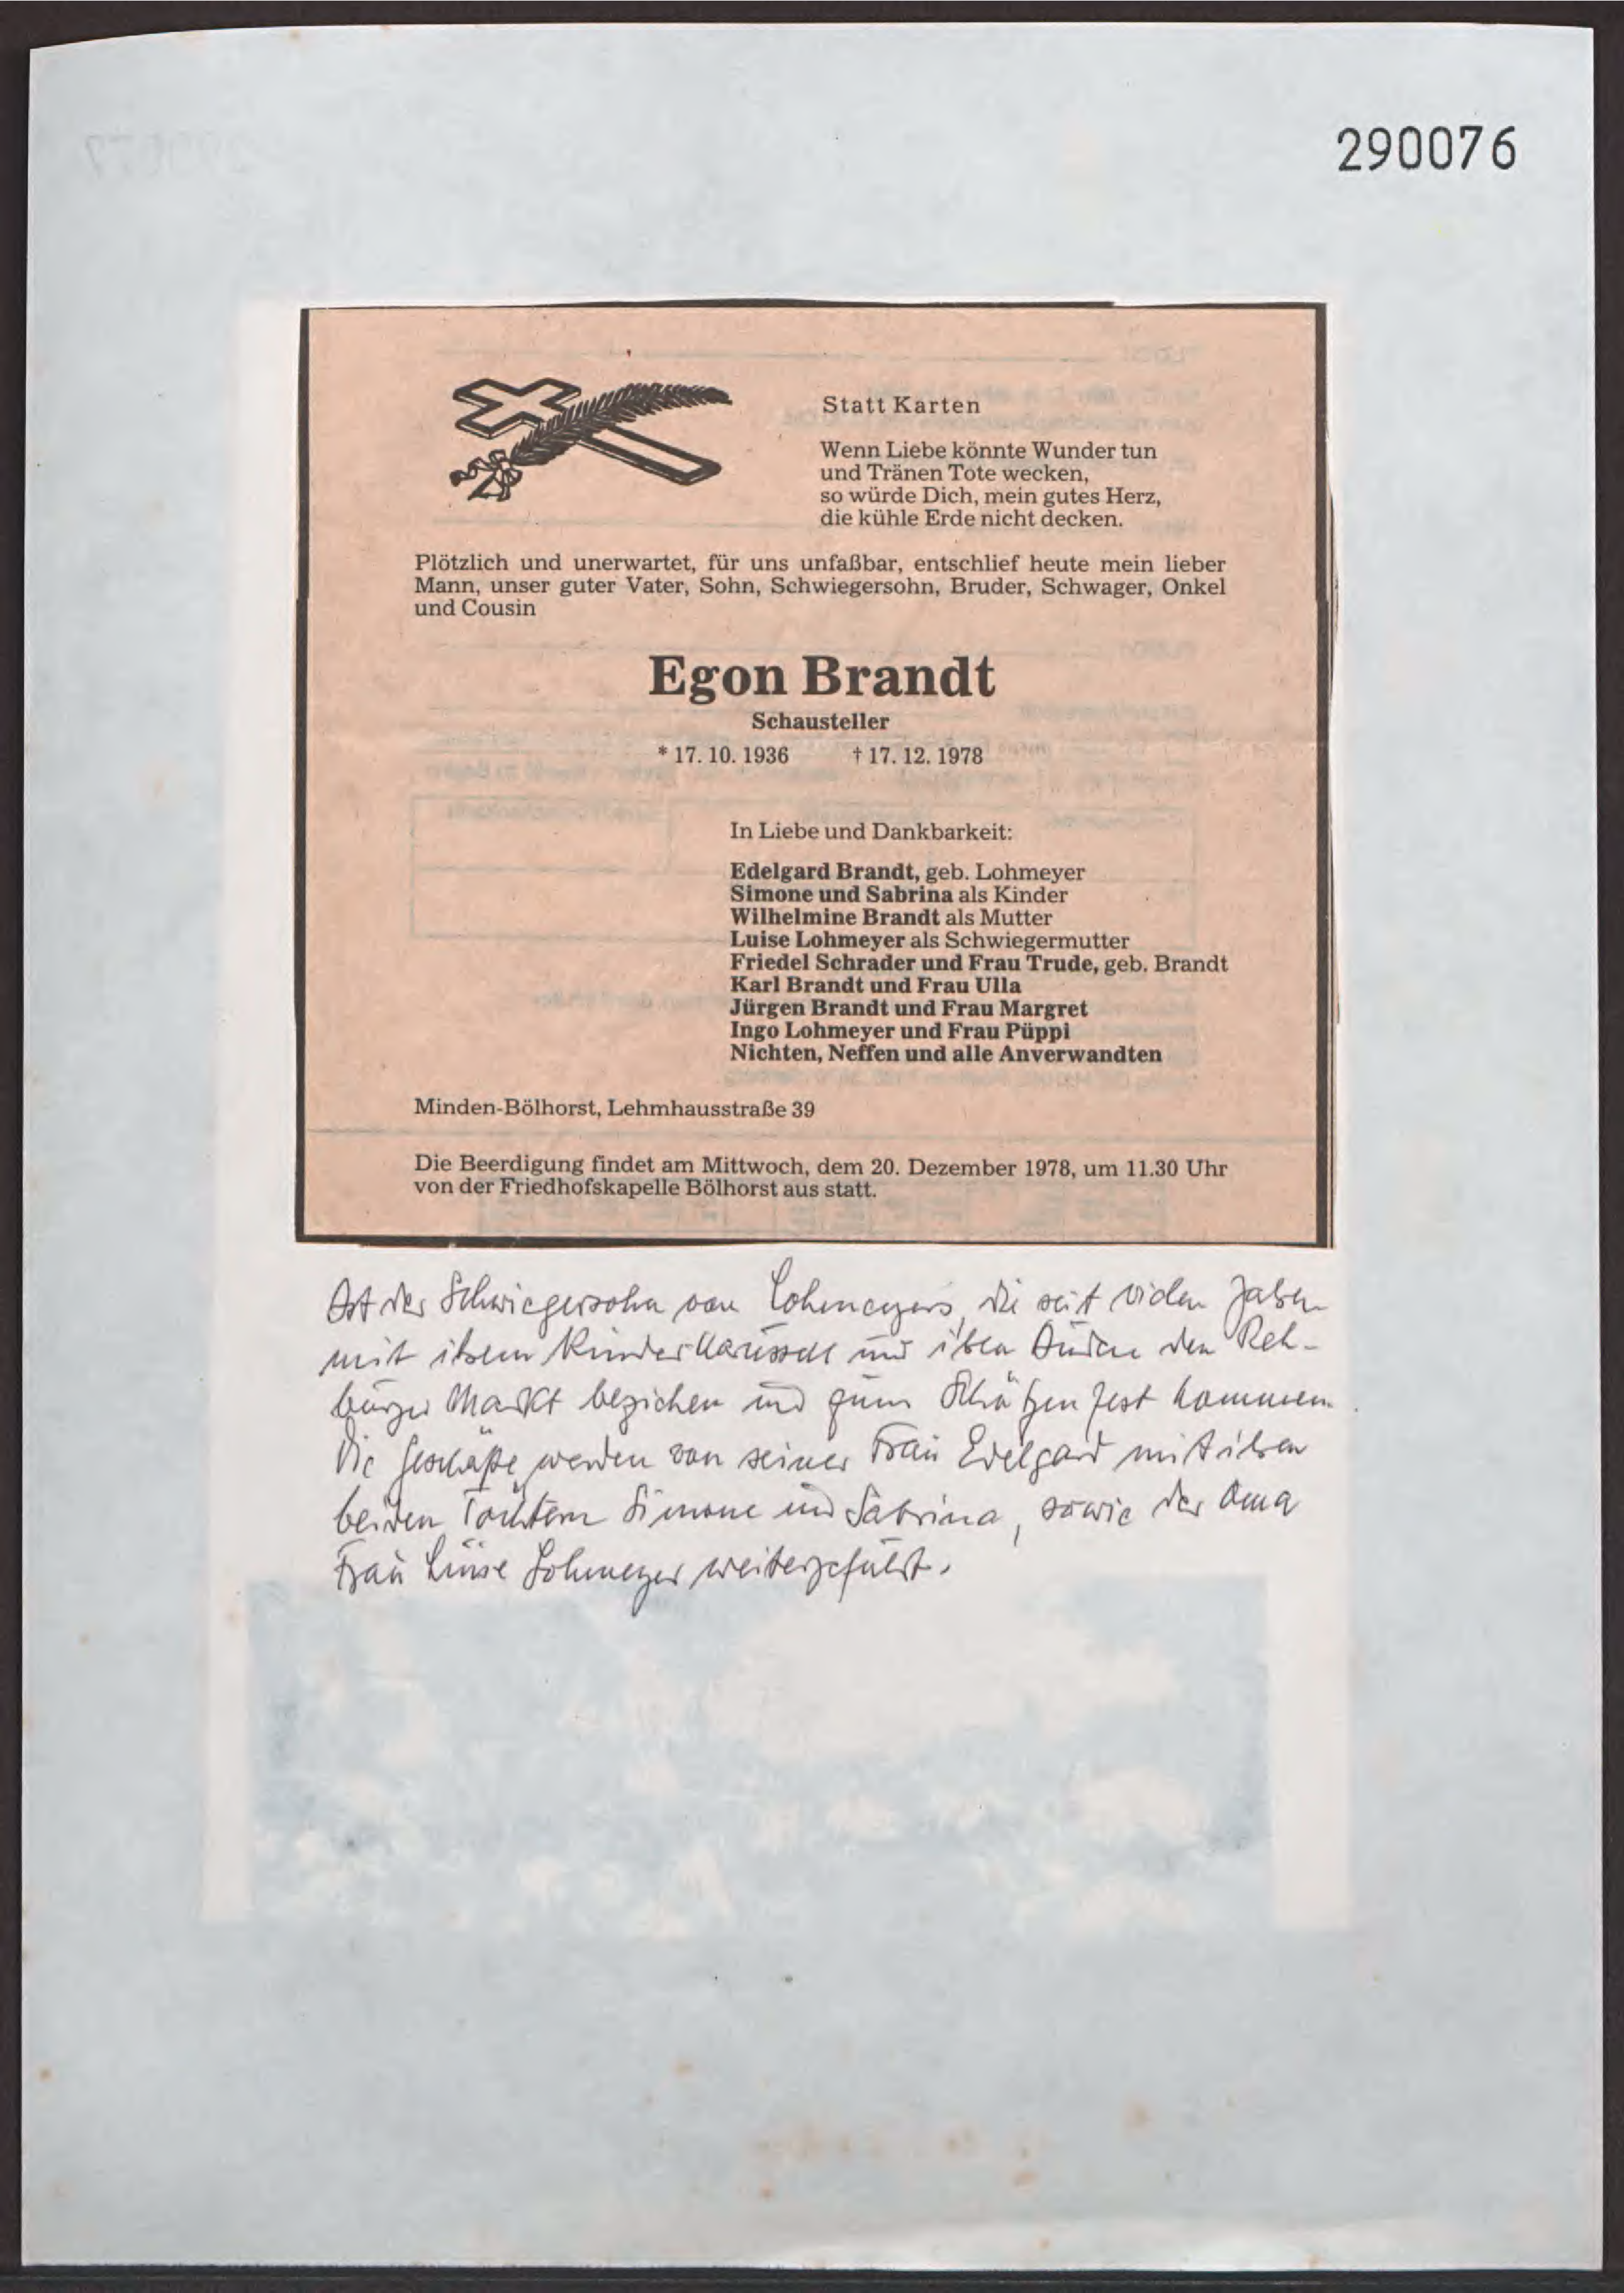 290076
Statt Karten
Wenn Liebe könnte Wunder tun
und Tränen Tote wecken,
so würde Dich, mein gutes Herz,
die kühle Erde nicht decken.
Plötzlich und unerwartet, für uns unfaßbar, entschlief heute mein lieber
Mann, unser guter Vater, Sohn, Schwiegersohn, Bruder, Schwager, Onkel
und Cousin
Egon Brandt
Schausteller
* 17. 10. 1936 † 17. 12. 1978
In Liebe und Dankbarkeit:
Edelgard Brandt, geb. Lohmeyer
Simone und Sabrina als Kinder
Wilhelmine Brandt als Mutter
Luise Lohmeyer als Schwiegermutter
Friedel Schrader und Frau Trude, geb. Brandt
Karl Brandt und Frau Ulla
Jürgen Brandt und Frau Margret
Ingo Lohmeyer und Frau Püppi
Nichten, Neffen und alle Anverwandten
Minden-Bölhorst, Lehmhausstraße 39
Die Beerdigung findet am Mittwoch, dem 20. Dezember 1978, um 11.30 Uhr
von der Friedhofskapelle Bölhorst aus statt.
Ist der Schwiegersohn von Lohmeyers, die seit vielen Jahren
mit ihrem Kinderkarussell und ihren Buden den Reh-
burger Markt beziehen und zum Schützenfest kommen.
Die Geschäfte werden von seiner Frau Edelgard mit ihren
beiden Töchtern Simone und Sabrina, sowie der Oma
Frau Luise Lohmeyer weitergeführt.